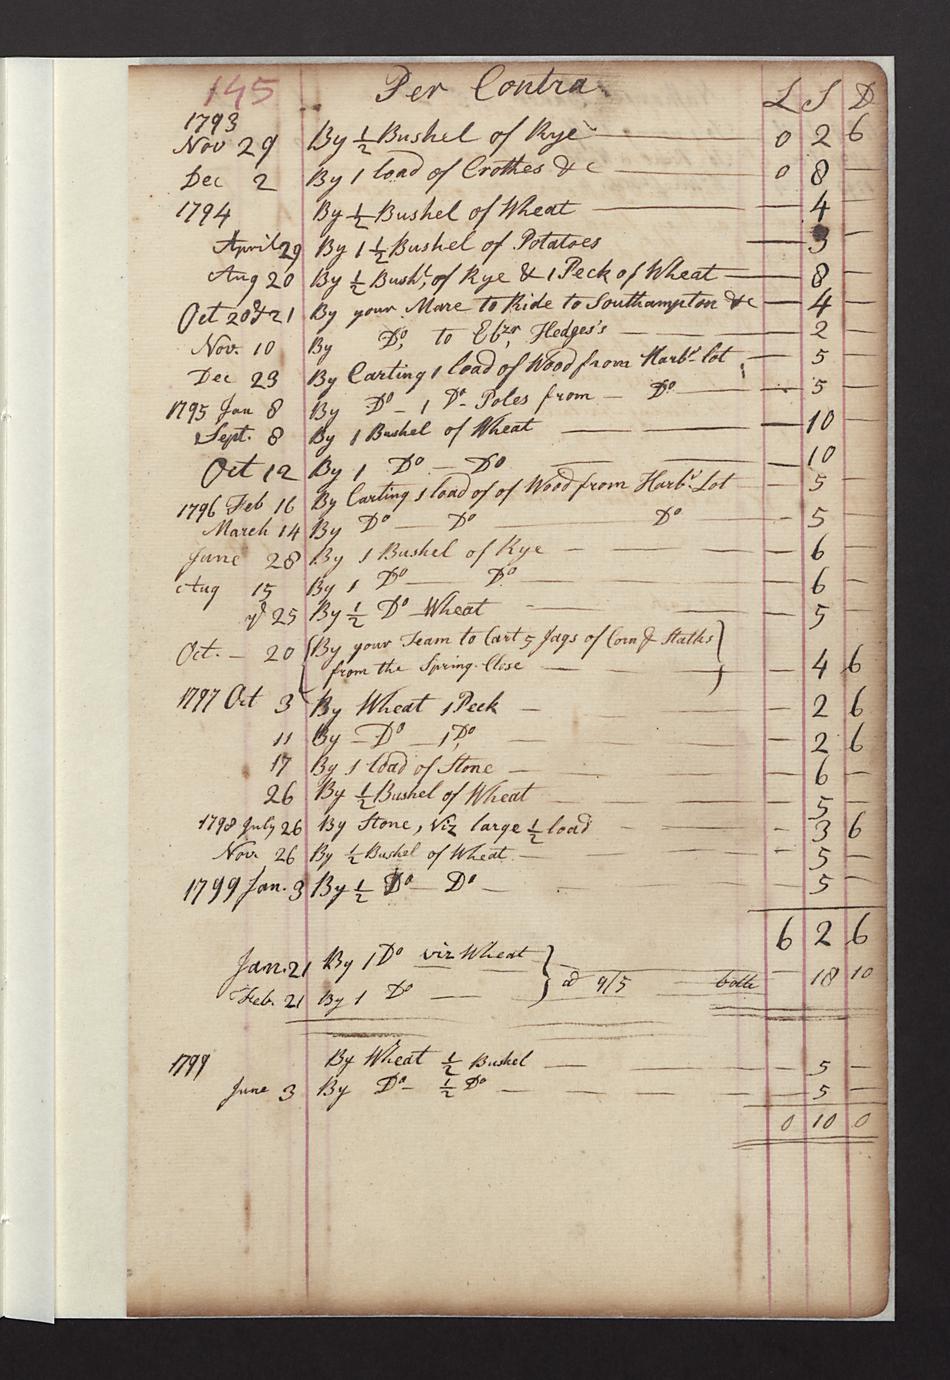 145 Per Contra L S D
1793
Nov 29 By ½ Bushel of Rye 0 2 6
Dec 2 By 1 load of Crothes &c 0 8 –
1794 By ½ Bushel of Wheat 4 –
April 29 By 1 ½ Bushel of Potatoes 3 –
Aug 20 By ½ Bushl, of Rye & 1 Peck of Wheat 8 –
Oct 20 & 21 By your Mare to Ride to Southampton &c 4 –
Nov. 10 By Do, to Ebzr, Hedges's 2 –
Dec 23 By Carting 1 load of Wood from Harbr lot 5 –
1795 Jan 8 By Do – 1 Do – Poles from – Do 5 –
Sept. 8 By 1 Bushel of Wheat 10 –
Oct 12 By 1 Do – Do 10 –
1796 Feb 16 By Carting 1 load of of Wood from Harbr Lot 5 –
March 14 By Do – Do Do 5 –
June 28 By 1 Bushel of Rye 6 –
Aug 15 By 1 Do Do 6 –
25 By ½ Do Wheat 5 –
Oct. – 20 By your Team to Cart 5 Jags of Corn & Stalks
from the Spring-Close 4 6
1797 Oct 3 By Wheat 1 Peck – 2 6
11 By – Do – 1 Do 2 6
17 By 1 load of Stone – 6 –
26 By ½ Bushel of Wheat 5 –
1798 July 26 By Stone, Viz large ½ load 3 6
Nov. 26 By ½ Bushel of Wheat – 5 –
1799 Jan. 3 By ½ Do – Do – 5 –
6 2 6
Jan. 21 By 1 Do viz Wheat
Feb. 21 By 1 Do – @ 9/5 both 18 10
1799 By Wheat ½ Bushel – 5 –
June 3 By Do – ½ Do – 5 –
0 10 0